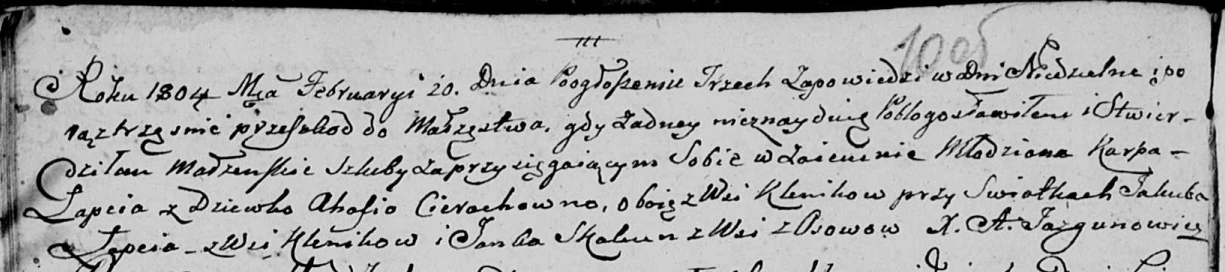 100об
Roku 1804 Mca Februaryi 20. Dnia Poogłoszeniu Trzech Zapowiedzi w Dni Niedzielne i po
rąztrzęsnie przeszkod do Małzęstwa, gdy Zadney nieznaydzię Pobłogosławiłem i Stwier-
dziłem Małzenskie Szluby Zaprzysięgaiącym Sobie wzaiemnie Młodziana Karpa-
Łapcia z Dziewko Ahafio Cierachowno, oboię z Wsi Klenikow przy Swiatkach Jakuba
Łapcia - z Wsi Klenikow i Janka Skakun z Wsi z Osowow X. A. Jazgunowicz